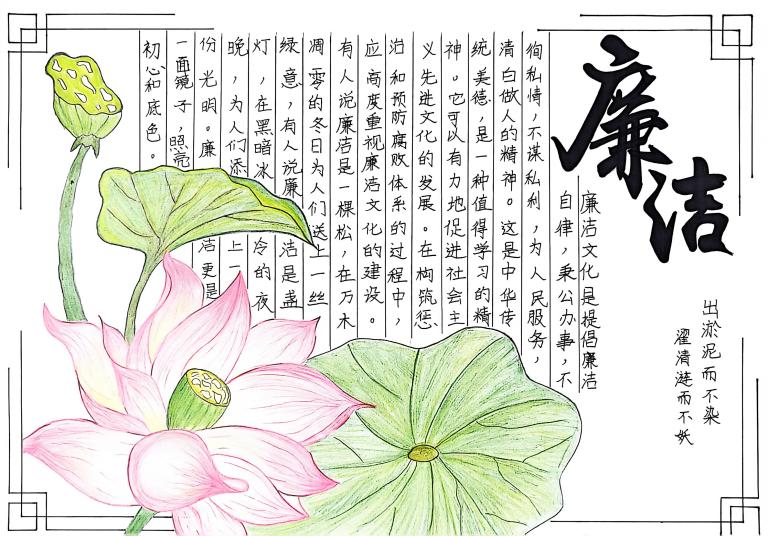 廉洁
出淤泥而不染
濯清涟而不妖
廉洁文化是提倡廉洁
自律，秉公办事，不
徇私情，不谋私利，为人民服务，
清白做人的精神。这是中华传
统美德，是一种值得学习的精
神。它可以有力地促进社会主
义先进文化的发展。在构筑惩
治和预防腐败体系的过程中，
应高度重视廉洁文化的建设。
有人说廉洁是一棵松，在万木
凋零的冬日为人们送上一丝
绿意，有人说廉洁是盏
灯，在黑暗冰冷的夜
晚，为人们添上一
份光明。廉洁更是
一面镜子，照亮
初心和底色。